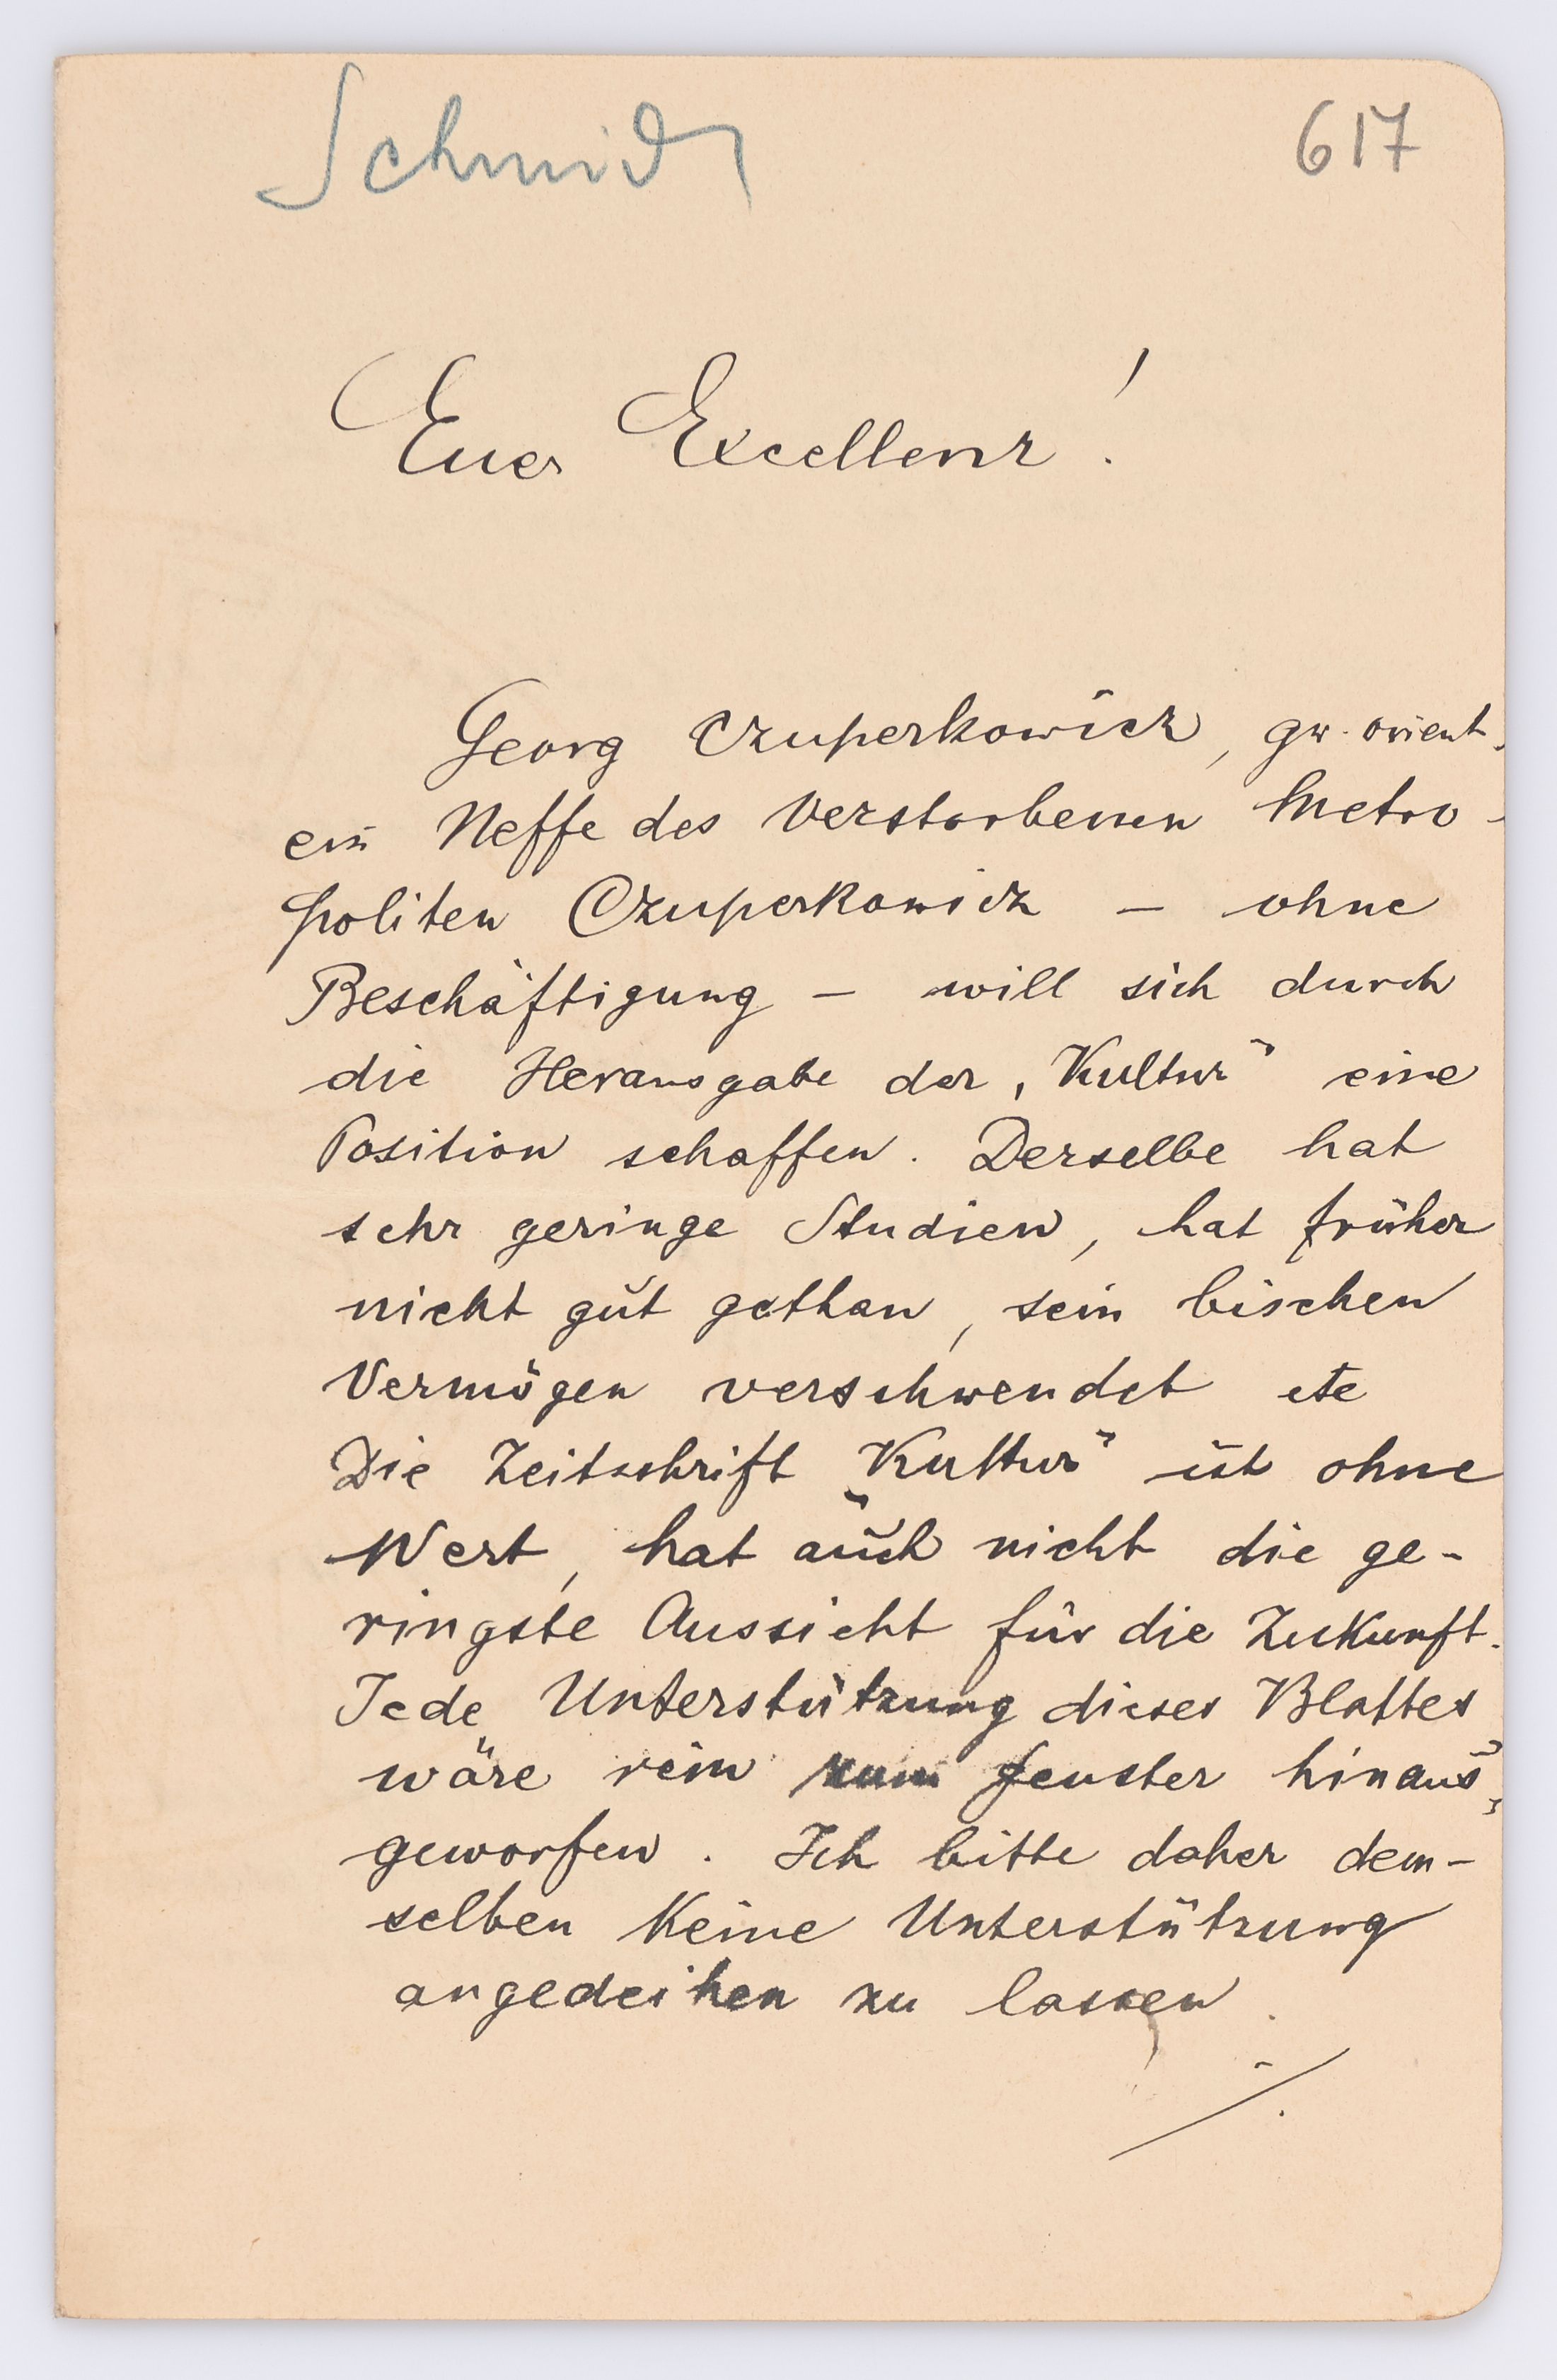 Schmidt
617
Euer Excellenz!
Georg Czuperkowicz, gr. orient.
ein Neffe des verstorbenen Metro-
politen Czuperkowicz – ohne
Beschäftigung – will sich durch
die Herausgabe der „Kultur“ eine
Position schaffen. Derselbe hat
sehr geringe Studien, hat früher
nicht gut gethan, sein bischen
Vermögen verschwendet etc
Die Zeitschrift „Kultur“ ist ohne
Wert, hat auch nicht die ge-
ringste Aussicht für die Zukunft.
Jede Unterstützung dieses Blattes
wäre rein zum Fenster hinaus-
geworfen. Ich bitte daher dem-
selben keine Unterstützung
angedeihen zu lassen.
./.